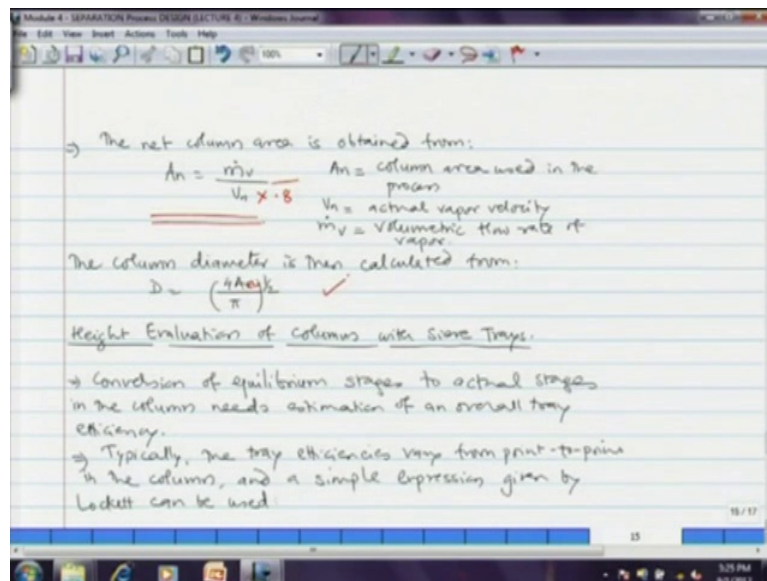 Module 4 - SEPARATION Process DESIGN (LECTURE 4) - Windows Journal
File Edit View Insert Actions Tools Help
100%
⇒ The net column area is obtained from:
An = ṁv / Vn × .8
An = column area used in the process
Vn = actual vapor velocity
ṁv = volumetric flow rate of vapor.
The column diameter is then calculated from:
D = (4A / π)^1/2 ✓
Height Evaluation of columns with Sieve Trays.
→ Conversion of equilibrium stages to actual stages
in the column needs estimation of an overall tray
efficiency.
⇒ Typically, the tray efficiencies vary from point-to-point
in the column, and a simple expression given by
Lockett can be used
15 / 17
15
5:25 PM